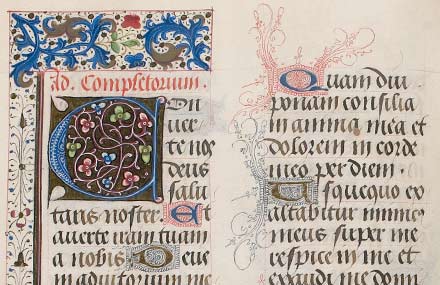 Ad. Completorium.
Con
uer
te nos
deus
salu
taris noster Et
auerte iram tuam
a nobis Deus
in adiutorium me
Quam diu
ponam consilia
in anima mea et
dolorem in corde
meo per diem.
Vsquequo ex
altabitur inimic
meus super me
respice in me et
exaudi me dom